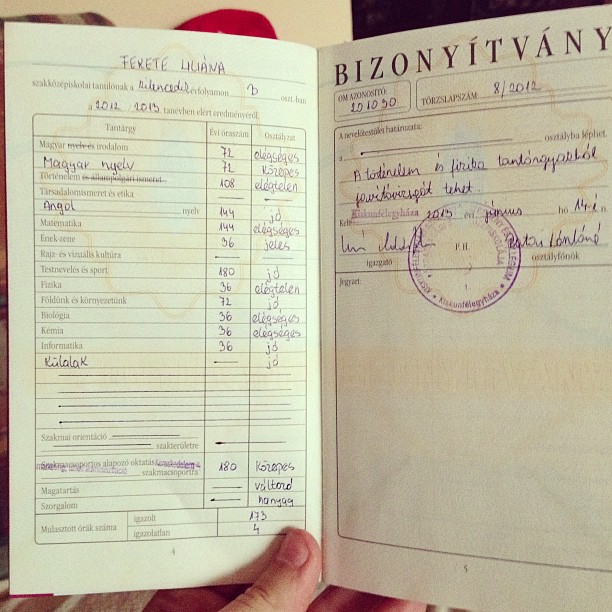 FEKETE LILIÁNA
szakközépiskolai tanulónak a kilencedik évfolyamon B oszt.-ban
a 2012 / 2013. tanévben elért eredményéről.
Tantárgy Évi óraszám Osztályzat
Magyar nyelv és irodalom 72 elégséges
Magyar nyelv 72 közepes
Történelem és állampolgári ismeret 108 elégtelen
Társadalomismeret és etika
Angol nyelv 144 jó
Matematika 144 elégséges
Ének-zene 36 jeles
Rajz- és vizuális kultúra
Testnevelés és sport 180 jó
Fizika 36 elégtelen
Földünk és környezetünk 72 jó
Biológia 36 elégséges
Kémia 36 elégséges
Informatika 36 jó
Külalak jó
Szakmai orientáció
szakterületre
Szakmacsoportos alapozó oktatás
szakmacsoportra 180 közepes
Magatartás változó
Szorgalom hanyag
Mulasztott órák száma igazolt 173
igazolatlan 4
4
BIZONYÍTVÁNY
OM AZONOSÍTÓ:
201090
TÖRZSLAPSZÁM: 8/2012
A nevelőtestület határozata:
a osztályba léphet.
A történelem és fizika tantárgyakból
javítóvizsgát tehet.
Kelt: Kiskunfélegyháza 2013. év június hó 14-én
P.H.
igazgató osztályfőnök
Kiskunfélegyháza
Jegyzet:
5